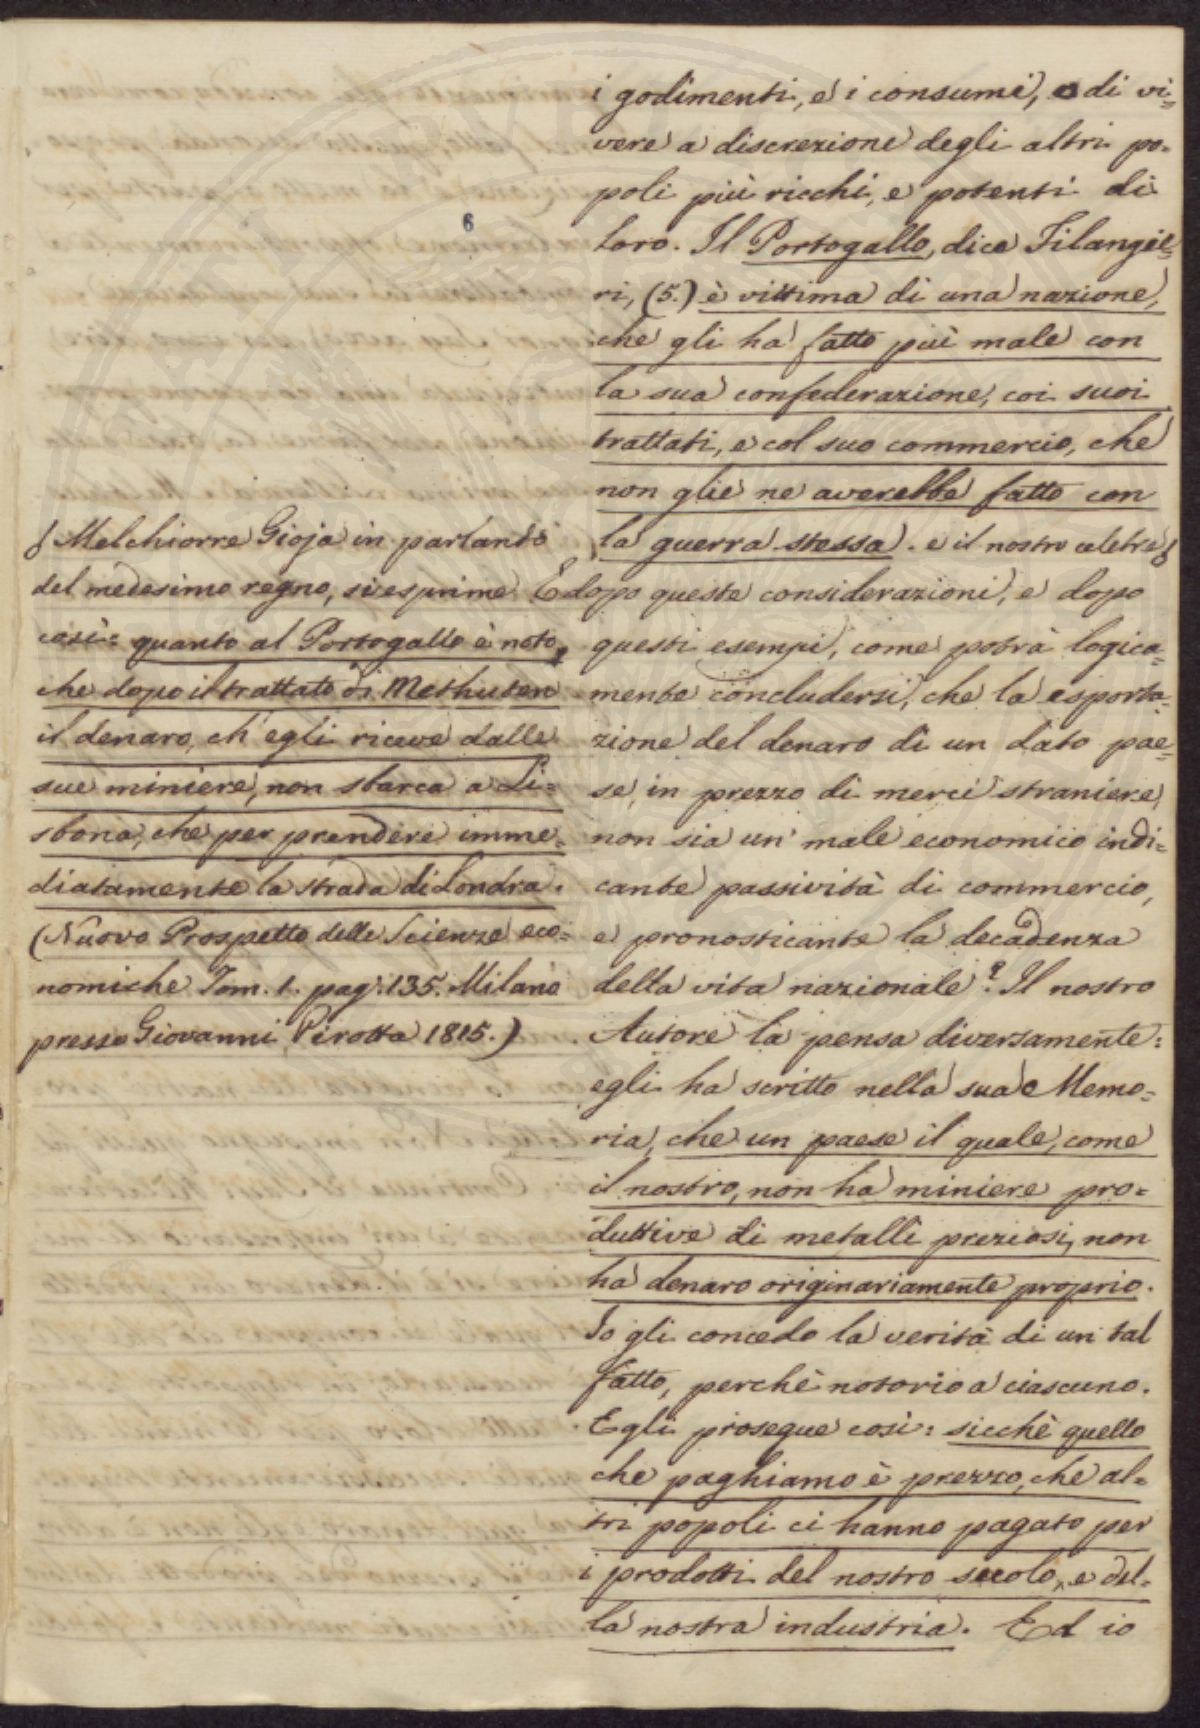 6
i godimenti, e i consumi, o di vi=
vere a discrezione degli altri po=
poli più ricchi, e potenti di
loro. Il Portogallo, dice Filangie=
ri, (5.) è vittima di una nazione,
che gli ha fatto più male con
la sua confederazione, coi suoi
trattati, e col suo commercio, che
non glie ne averebbe fatto con
la guerra stessa. e il nostro celebre
Melchiorre Gioja in parlando
del medesimo regno, si esprime
così= quanto al Portogallo è noto,
che dopo il trattato di Methuten
il denaro, ch'egli riceve dalle
sue miniere, non sbarca a Li=
sbona, che per prendere imme=
diatamente la strada di Londra.
(Nuovo Prospetto delle Scienze eco=
nomiche Tom. 1. pag. 135. Milano
presso Giovanni Pirotta 1815.)
E dopo queste considerazioni, e dopo
questi esempi, come potrà logica=
mente concludersi, che la esporta=
zione del denaro di un dato pae=
se, in prezzo di merci straniere,
non sia un' male economico indi=
cante passività di commercio,
e pronosticante la decadenza
della vita nazionale? Il nostro
Autore la pensa diversamente:
egli ha scritto nella sua Memo=
ria, che un paese il quale, come
il nostro, non ha miniere pro=
duttive di metalli preziosi, non
ha denaro originariamente proprio.
Io gli concedo la verità di un tal
fatto, perchè notorio a ciascuno.
Egli prosegue così: sicchè quello
che paghiamo è prezzo, che al=
tri popoli ci hanno pagato per
i prodotti del nostro secolo, e del=
la nostra industria. Ed io